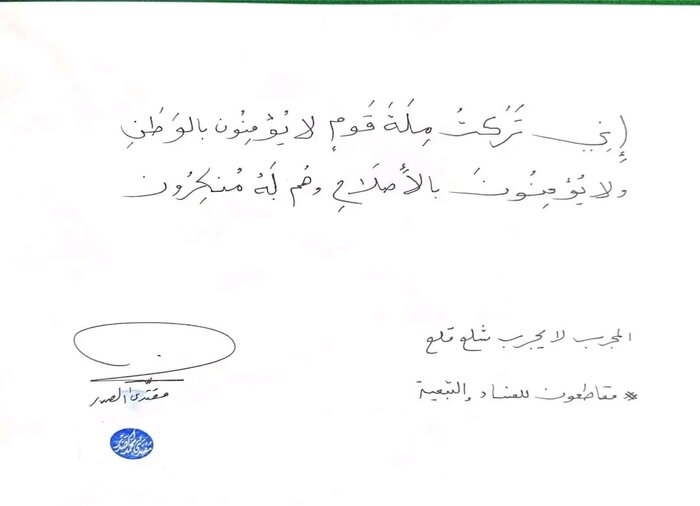 إِنِّي تَرَكتُ مِلَةَ قَومٍ لا يُؤمِنُون بالوَطَنِ
ولا يُؤمِنُونَ بالأصلَاحِ وهُم لَهُ مُنكِرُون
المجرب لا يجرب شلع قلع
* مقاطعون للفساد والتبعية
مقتدى الصدر